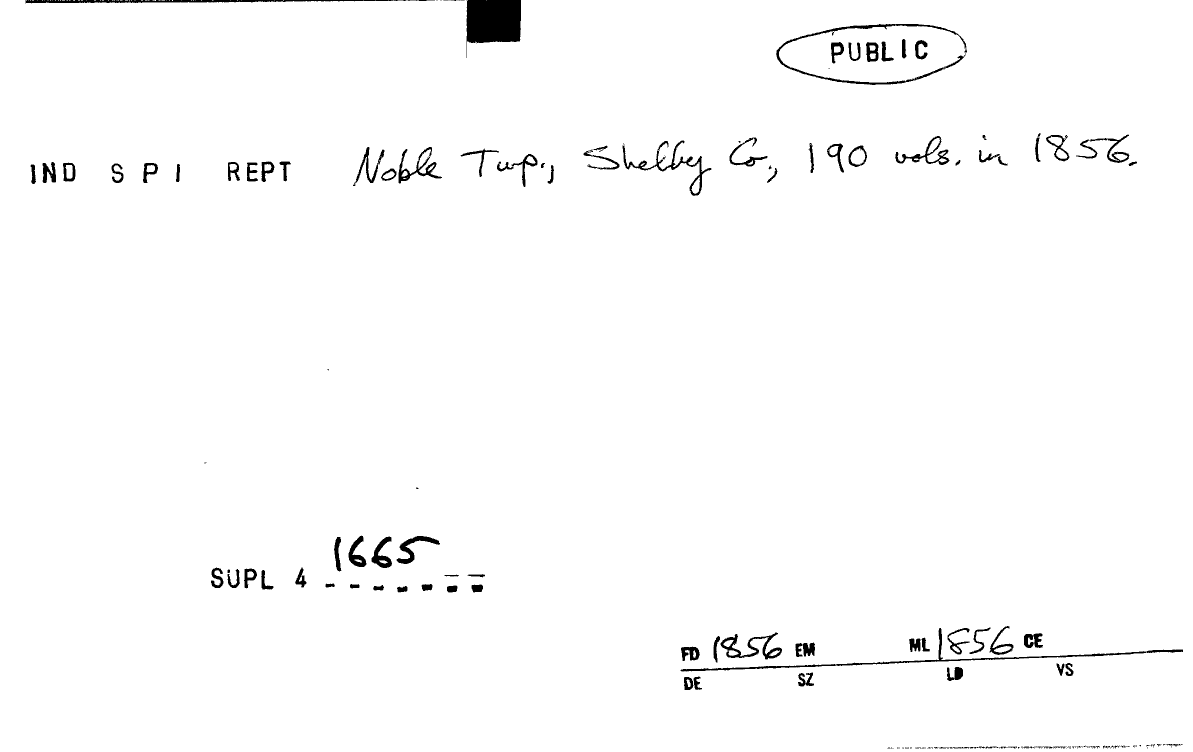 PUBLIC
IND S P I REPT Noble Twp., Shelby Co., 190 vols. in 1856.
1665
SUPL 4
FD 1856 EM ML 1856 CE
DE SZ LD VS